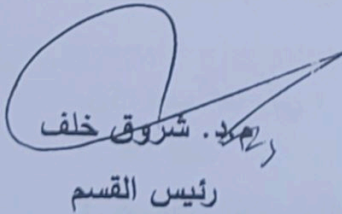 م.د. شروق خلف
رئيس القسم